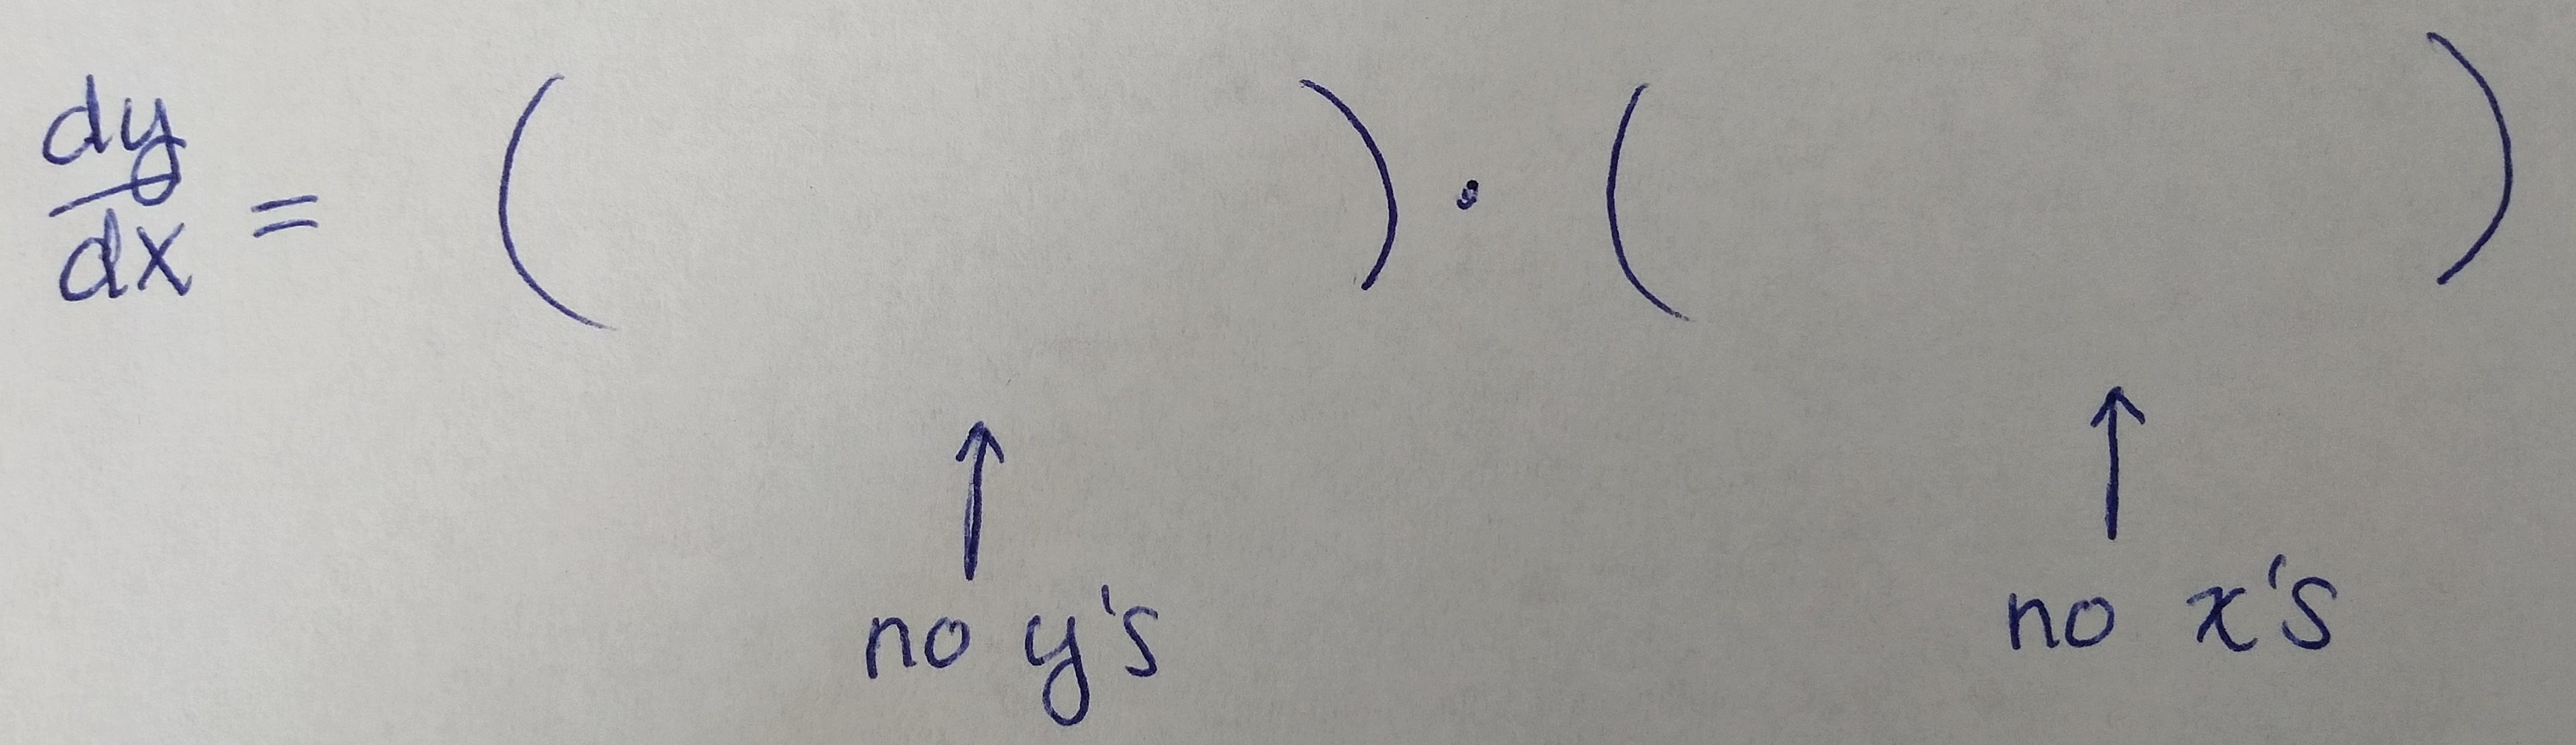 dy/dx = (        ) · (        )
↑ ↑
no y's no x's